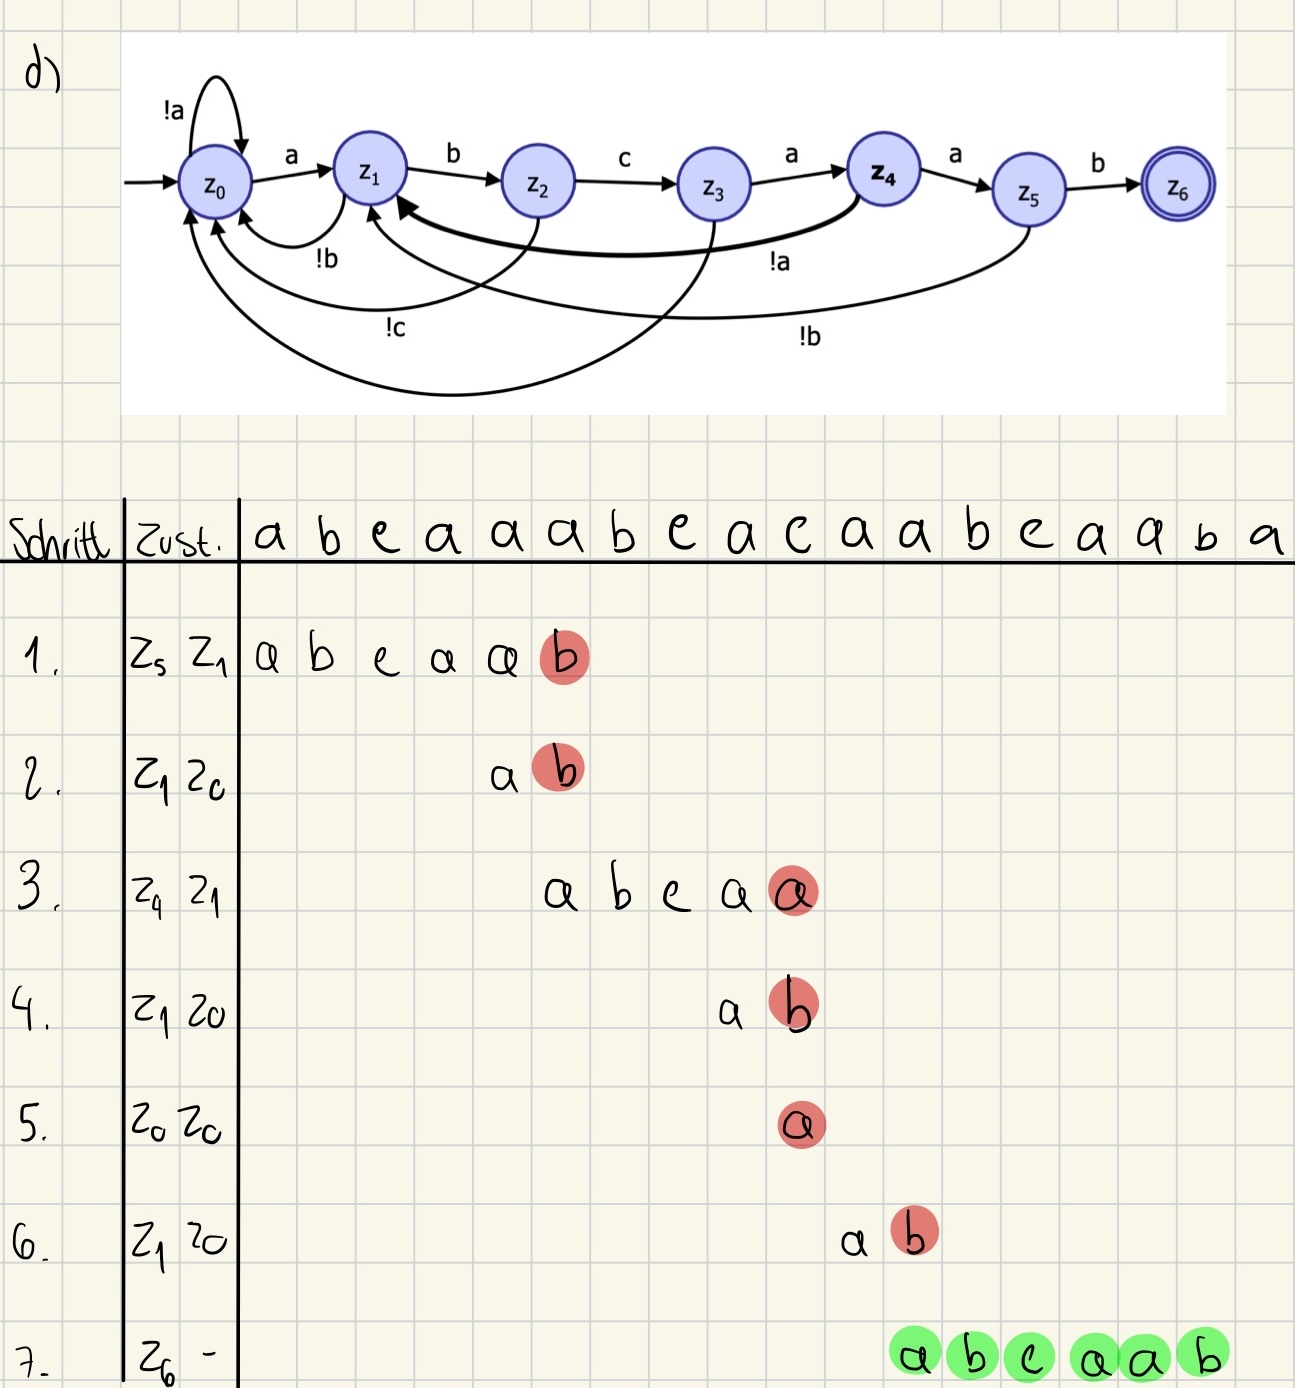 d)
!a a b c a a b
z0 z1 z2 z3 z4 z5 z6
!b !a
!c !b
Schritt Zust. a b c a a a b c a c a a b c a a b a
1. z5 z1 a b c a a b
2. z1 z0 a b
3. z4 z1 a b c a a
4. z1 z0 a b
5. z0 z0 a
6. z1 z0 a b
7. z6 - a b c a a b